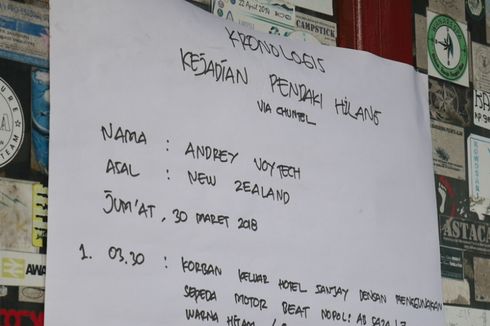 KRONOLOGIS
KEJADIAN PENDAKI HILANG
VIA CHUMEL
NAMA : ANDREY VOYTECH
ASAL : NEW ZEALAND
JUM'AT, 30 MARET 2018
1. 03.30 : KORBAN KELUAR HOTEL SANJAY DENGAN MENGGUNAKAN
SEPEDA MOTOR BEAT NOPOL: AB
WARNA HITAM
22 April 2018
CAMPSTICK
ASTACA
AWA